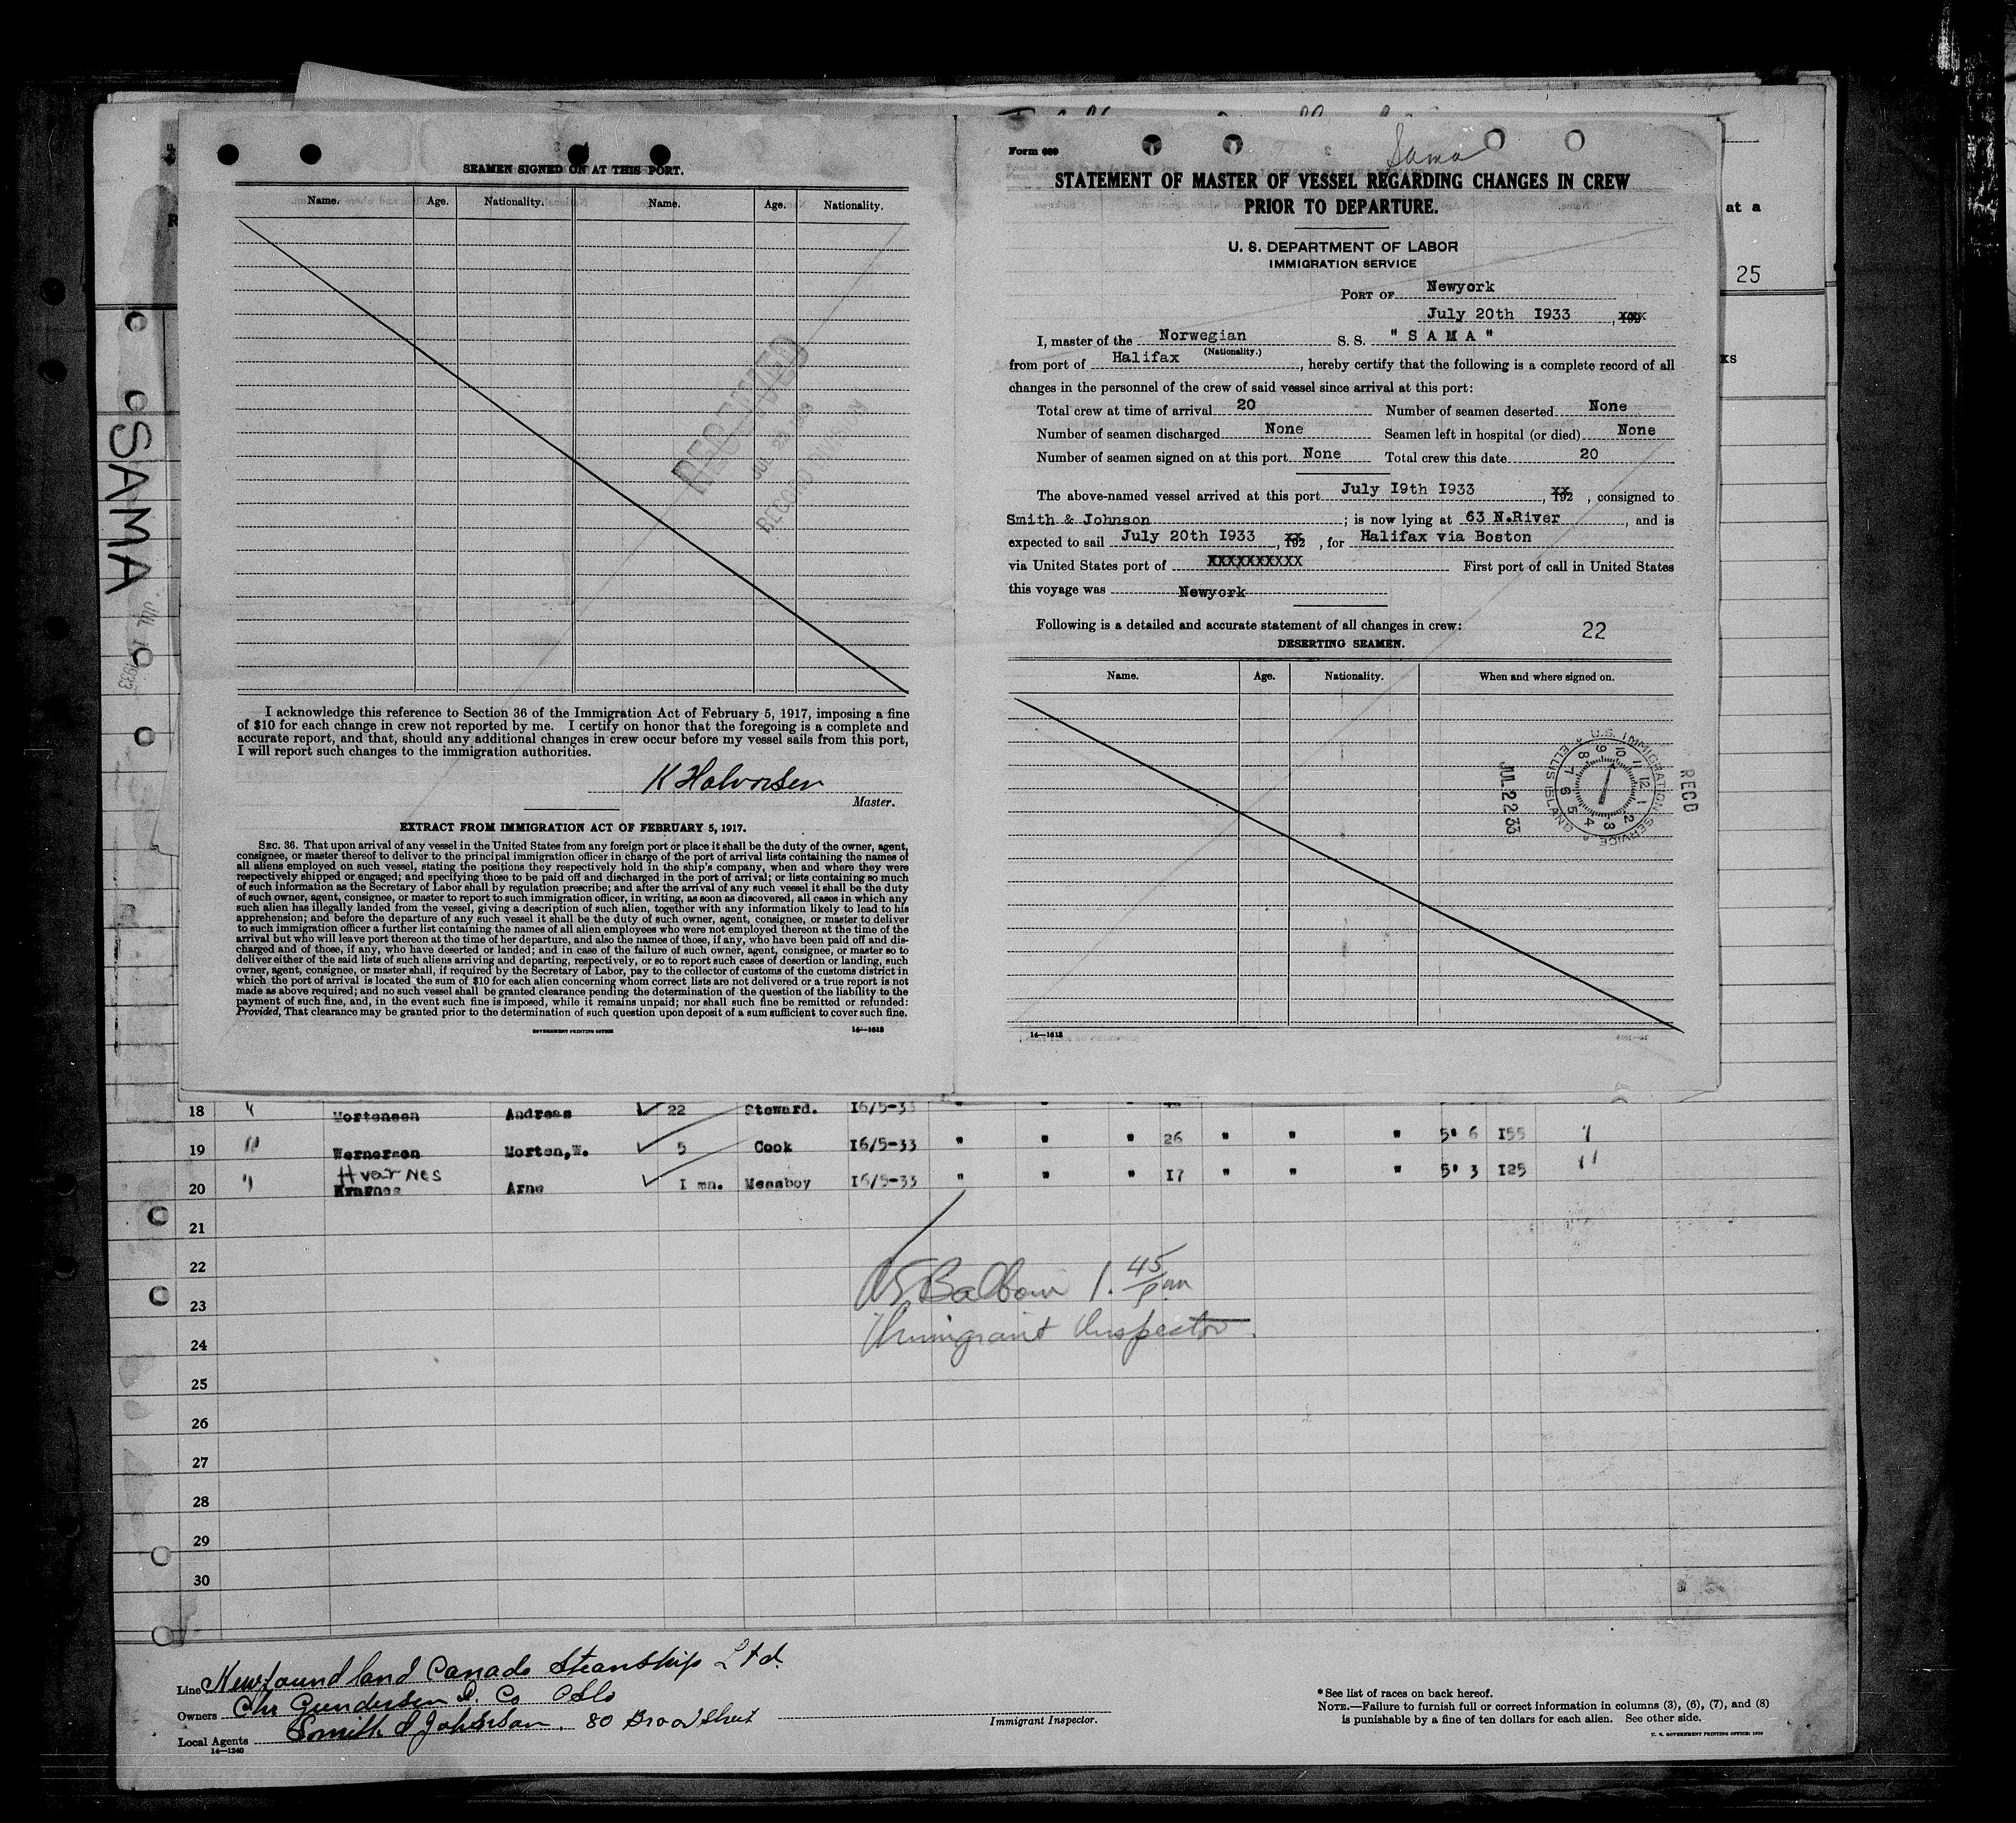 SEAMEN SIGNED ON AT THIS PORT.
Name. Age. Nationality. Name. Age. Nationality.
RECEIVED
JUL
RECORD DIVISION
I acknowledge this reference to Section 36 of the Immigration Act of February 5, 1917, imposing a fine
of $10 for each change in crew not reported by me. I certify on honor that the foregoing is a complete and
accurate report, and that, should any additional changes in crew occur before my vessel sails from this port,
I will report such changes to the immigration authorities.
K Halvorsen
Master.
EXTRACT FROM IMMIGRATION ACT OF FEBRUARY 5, 1917.
SEC. 36. That upon arrival of any vessel in the United States from any foreign port or place it shall be the duty of the owner, agent,
consignee, or master thereof to deliver to the principal immigration officer in charge of the port of arrival lists containing the names of
all aliens employed on such vessel, stating the positions they respectively hold in the ship's company, when and where they were
respectively shipped or engaged; and specifying those to be paid off and discharged in the port of arrival; or lists containing so much
of such information as the Secretary of Labor shall by regulation prescribe; and after the arrival of any such vessel it shall be the duty
of such owner, agent, consignee, or master to report to such immigration officer, in writing, as soon as discovered, all cases in which any
such alien has illegally landed from the vessel, giving a description of such alien, together with any information likely to lead to his
apprehension; and before the departure of any such vessel it shall be the duty of such owner, agent, consignee, or master to deliver
to such immigration officer a further list containing the names of all alien employees who were not employed thereon at the time of the
arrival but who will leave port thereon at the time of her departure, and also the names of those, if any, who have been paid off and dis-
charged and of those, if any, who have deserted or landed; and in case of the failure of such owner, agent, consignee, or master so to
deliver either of the said lists of such aliens arriving and departing, respectively, or so to report such cases of desertion or landing, such
owner, agent, consignee, or master shall, if required by the Secretary of Labor, pay to the collector of customs of the customs district in
which the port of arrival is located the sum of $10 for each alien concerning whom correct lists are not delivered or a true report is not
made as above required; and no such vessel shall be granted clearance pending the determination of the question of the liability to the
payment of such fine, and, in the event such fine is imposed, while it remains unpaid; nor shall such fine be remitted or refunded:
Provided, That clearance may be granted prior to the determination of such question upon deposit of a sum sufficient to cover such fine.
GOVERNMENT PRINTING OFFICE 14—1613
Form 689
Sama
STATEMENT OF MASTER OF VESSEL REGARDING CHANGES IN CREW
PRIOR TO DEPARTURE.
U. S. DEPARTMENT OF LABOR
IMMIGRATION SERVICE
PORT OF Newyork
July 20th I933 , 192
I, master of the Norwegian S. S. " S A M A "
(Nationality.)
from port of Halifax , hereby certify that the following is a complete record of all
changes in the personnel of the crew of said vessel since arrival at this port:
Total crew at time of arrival 20 Number of seamen deserted None
Number of seamen discharged None Seamen left in hospital (or died) None
Number of seamen signed on at this port None Total crew this date 20
The above-named vessel arrived at this port July I9th I933 , 192 , consigned to
Smith & Johnson ; is now lying at 63 N.River , and is
expected to sail July 20th I933 , 192 , for Halifax via Boston
via United States port of XXXXXXXXXX First port of call in United States
this voyage was Newyork
Following is a detailed and accurate statement of all changes in crew: 22
DESERTING SEAMEN.
Name. Age. Nationality. When and where signed on.
U.S. IMMIGRATION SERVICE
ELLIS ISLAND
RECD
JUL 22 33
14—1613
at a
25
ks
SAMA
JUL 1933
18 " Mortensen Andreas 22 Steward. I6/5-33
19 " Wernersen Morten,W. 5 Cook I6/5-33 " " " 26 " " " 5' 6 I55
Hvarnes
20 " Arne I mn. Messboy I6/5-33 " " " I7 " " " 5' 3 I25
21
22
23
24
25
26
27
28
29
30
1.45 pm
Immigrant Inspector.
Line Newfoundland Canada Steamship Ltd.
Owners Chr Gundersen & Co Oslo
Local Agents Smith & Johnson, 80 Broad Street
14—1240
Immigrant Inspector.
* See list of races on back hereof.
NOTE.—Failure to furnish full or correct information in columns (3), (6), (7), and (8)
is punishable by a fine of ten dollars for each alien. See other side.